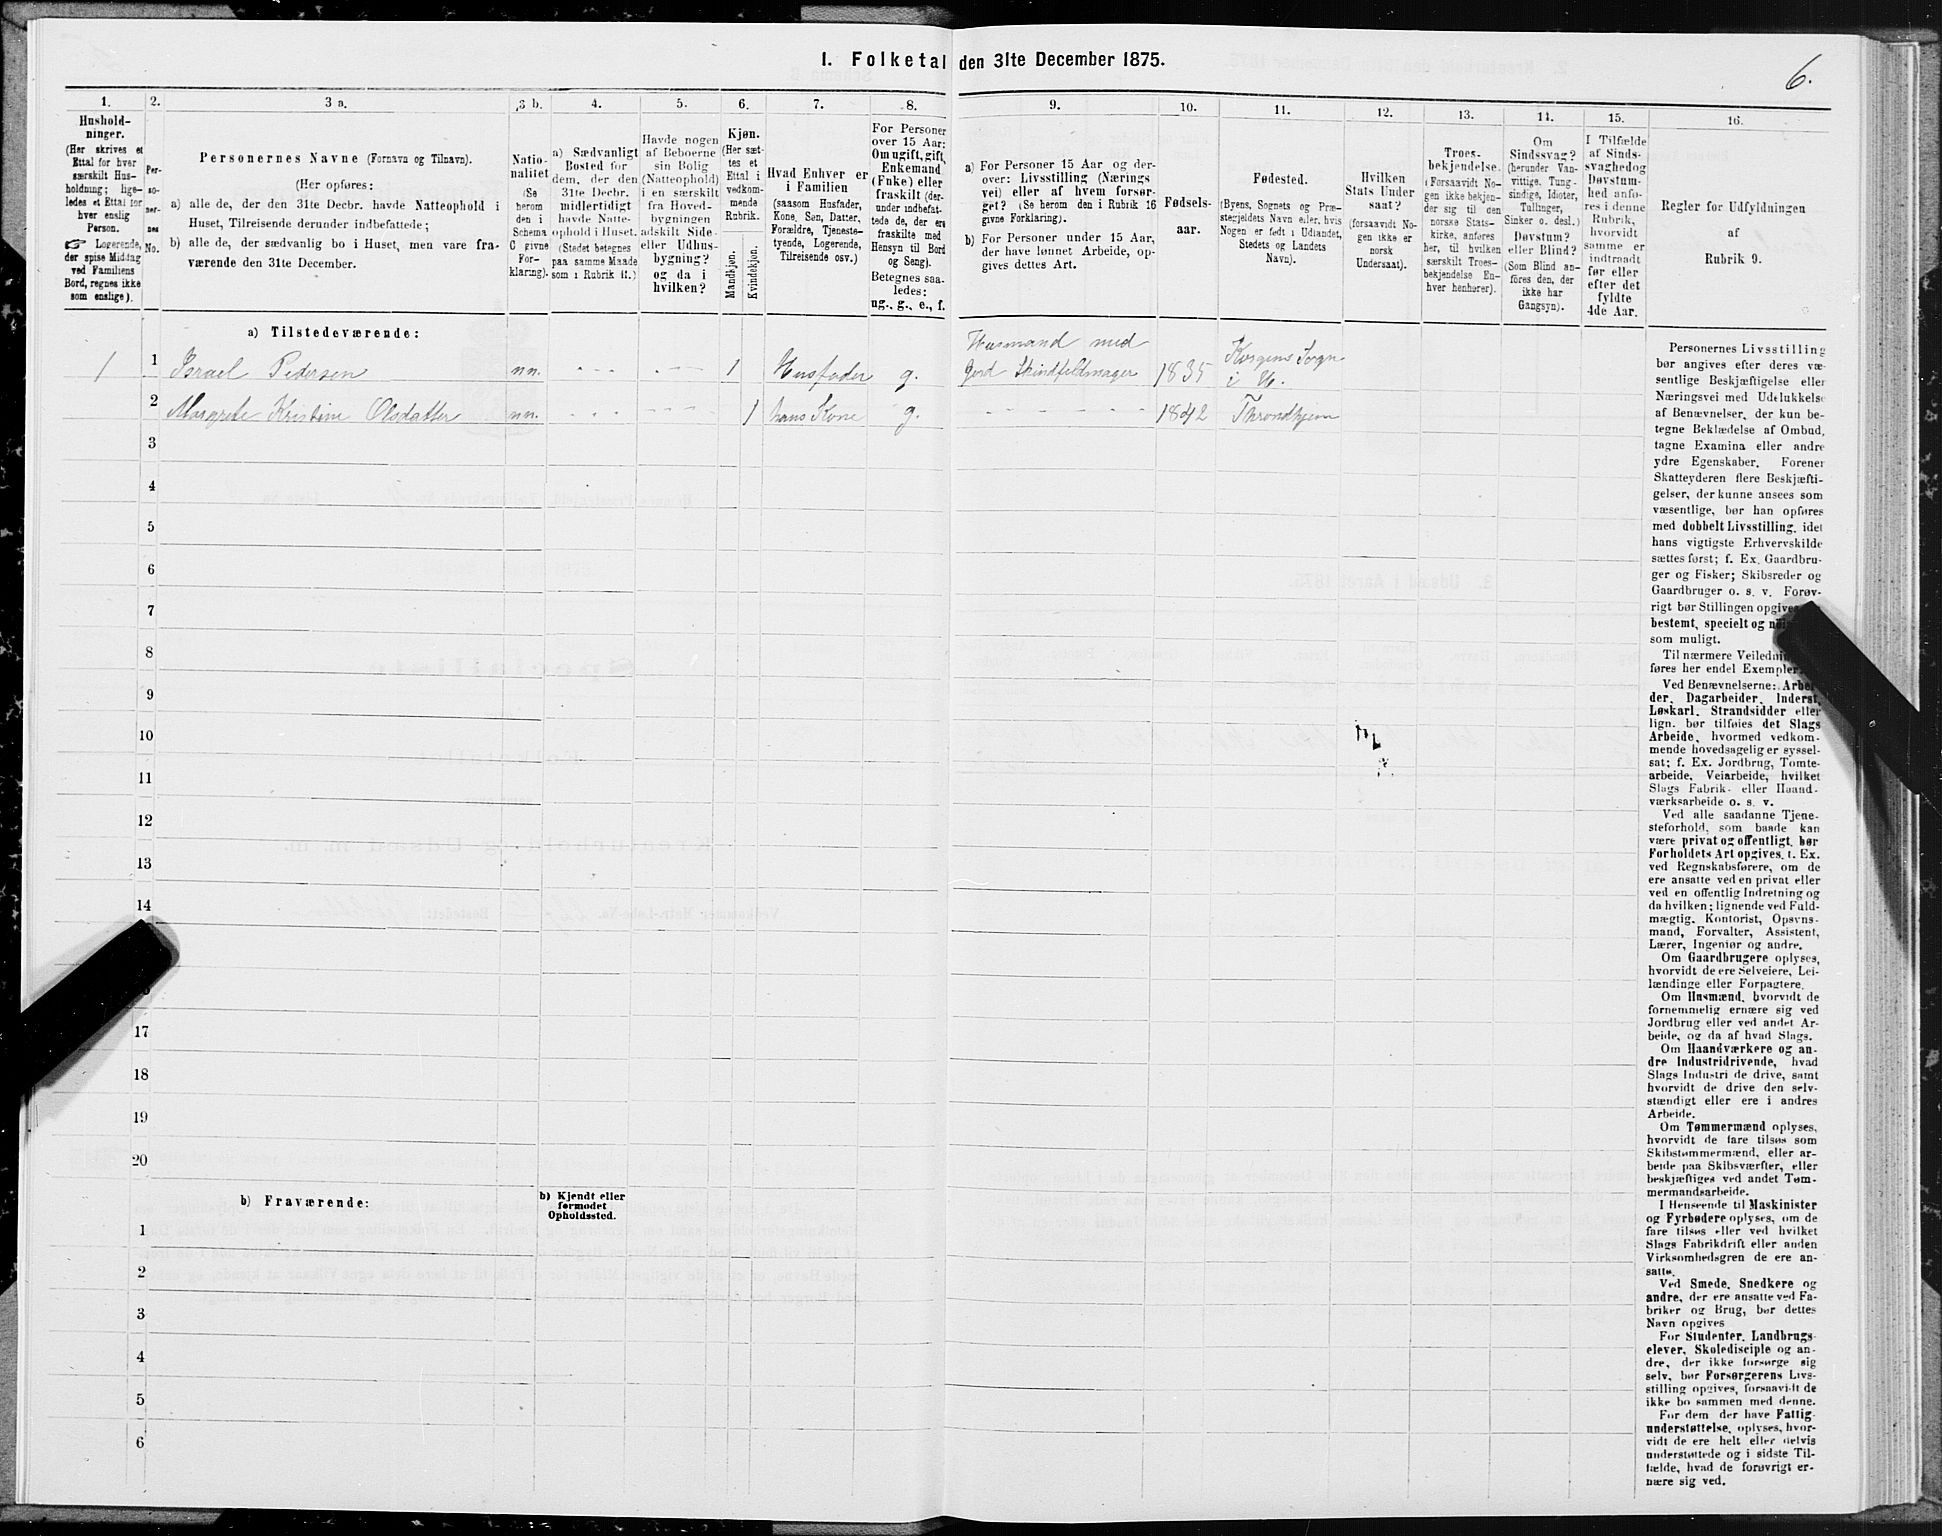 1. Folketal den 31te December 1875.
6.
1.
Hushold-
ninger.
(Her skrives et
Ettal for hver
særskilt Hus-
holdning; lige-
ledes et Ettal for
hver enslig
Person.
☞ Logerende,
der spise Middag
ved Familiens
Bord, regnes ikke
som enslige).
2.
Per-
so-
ner-
nes
No.
3 a.
Personernes Navne (Fornavn og Tilnavn).
(Her opføres:
a) alle de, der den 31te Decbr. havde Natteophold i
Huset, Tilreisende derunder indbefattede;
b) alle de, der sædvanlig bo i Huset, men vare fra-
værende den 31te December.
3 b.
Natio-
nalitet
(Se
herom
den i
Schema
C givne
For-
klaring).
4.
a) Sædvanligt
Bosted for
dem, der den
31te Decbr.
midlertidigt
havde Natte-
ophold i Huset.
(Stedet betegnes
paa samme Maade
som i Rubrik 11.)
5.
Havde nogen
af Beboerne
sin Bolig
(Natteophold)
i en særskilt
fra Hoved-
bygningen
adskilt Side-
eller Udhus-
bygning?
og da i
hvilken?
6.
Kjøn.
(Her sæt-
tes et
Ettal i
vedkom-
mende
Rubrik.
Mandkjøn.
Kvindekjøn.
7.
Hvad Enhver er
i Familien
(saasom Husfader,
Kone, Søn, Datter,
Forældre, Tjeneste-
tyende, Logerende,
Tilreisende osv.)
8.
For Personer
over 15 Aar:
Om ugift, gift,
Enkemand
(Enke) eller
fraskilt (der-
under indbefat-
tede de, der ere
fraskilte med
Hensyn til Bord
og Seng).
Betegnes saa-
ledes:
ug., g., e., f.
9.
a) For Personer 15 Aar og der-
over: Livsstilling (Nærings-
vei) eller af hvem forsør-
get? (Se herom den i Rubrik 16
givne Forklaring).
b) For Personer under 15 Aar,
der have lønnet Arbeide, op-
gives dettes Art.
10.
Fødsels-
aar.
11.
Fødested.
(Byens, Sognets og Præ-
stegjeldets Navn eller, hvis
Nogen er født i Udlandet,
Stedets og Landets
Navn).
12.
Hvilken
Stats Under-
saat?
(forsaavidt No-
gen ikke er
norsk
Undersaat).
13.
Troes-
bekjendelse.
(Forsaavidt No-
gen ikke bekjen-
der sig til den
norske Stats-
kirke, anføres
her, til hvilken
særskilt Troes-
bekjendelse En-
hver henhører).
14.
Om
Sindssvag?
(herunder Van-
vittige, Tung-
sindige, Idioter,
Tullinger,
Sinker o. desl.)
Døvstum?
eller Blind?
(Som Blind an-
føres den, der
ikke har
Gangsyn).
15.
I Tilfælde
af Sinds-
svaghed og
Døvstum-
hed anfø-
res i denne
Rubrik,
hvorvidt
samme er
indtraadt
før eller
efter det
fyldte
4de Aar.
16.
Regler for Udfyldningen
af
Rubrik 9.
a) Tilstedeværende:
1 1 Israel Pedersen nn. 1 Husfader g. Husmand med
Jord Skindfeldmager 1835 Korgens Sogn
i H.
2 Margrete Kristine Olsdatter nn. 1 hans Kone g. 1842 Throndhjem
3
4
5
6
7
8
9
10
11
12
13
14
17
18
19
20
b) Fraværende:
b) Kjendt eller
formodet
Opholdssted.
1
2
3
4
5
6
Personernes Livsstilling
bør angives efter deres væ-
sentlige Beskjæftigelse eller
Næringsvei med Udelukkelse
af Benævnelser, der kun be-
tegne Beklædelse af Ombud,
tagne Examina eller andre
ydre Egenskaber. Forener
Skatteyderen flere Beskjæfti-
gelser, der kunne ansees som
væsentlige, bør han opføres
med dobbelt Livsstilling, idet
hans vigtigste Erhvervskilde
sættes først; f. Ex. Gaardbru-
ger og Fisker; Skibsreder og
Gaardbruger o. s. v. Forøv-
rigt bør Stillingen opgives
bestemt, specielt og
som muligt.
Til nærmere
føres her endel Exempler
Ved Benævnelserne: Arbei-
der, Dagarbeider, Inderst,
Løskarl, Strandsidder eller
lign. bør tilføies det Slags
Arbeide, hvormed vedkom-
mende hovedsagelig er syssel-
sat; f. Ex. Jordbrug, Tomte-
arbeide, Veiarbeide, hvilket
Slags Fabrik- eller Haand-
værksarbeide o. s. v.
Ved alle saadanne Tjene-
steforhold, som baade kan
være privat og offentligt, bør
Forholdets Art opgives, t. Ex.
ved Regnskabsførere, om de
ere ansatte ved en privat eller
ved en offentlig Indretning og
da hvilken; lignende ved Fuld-
mægtig, Kontorist, Opsyns-
mand, Forvalter, Assistent,
Lærer, Ingeniør og andre.
Om Gaardbrugere oplyses,
hvorvidt de ere Selveiere, Lei-
lændinge eller Forpagtere.
Om Husmænd, hvorvidt de
fornemmelig ernære sig ved
Jordbrug eller ved andet Ar-
beide, og da af hvad Slags.
Om Haandværkere og an-
dre Industridrivende, hvad
Slags Industri de drive, samt
hvorvidt de drive den selv-
stændigt eller ere i andres
Arbeide.
Om Tømmermænd oplyses,
hvorvidt de fare tilsøs som
Skibstømmermænd, eller ar-
beide paa Skibsværfter, eller
beskjæftiges ved andet Tøm-
mermandsarbeide.
I Henseende til Maskinister
og Fyrbødere oplyses, om de
fare tilsøs eller ved hvilket
Slags Fabrikdrift eller anden
Virksomhedsgren de ere an-
satte.
Ved Smede, Snedkere og
andre, der ere ansatte ved Fa-
briker og Brug, bør dettes
Navn opgives
For Studenter, Landbrugs-
elever, Skoledisciple og an-
dre, der ikke forsørge sig
selv, bør Forsørgerens Livs-
stilling opgives, forsaavidt de
ikke bo sammen med denne.
For dem der have Fattig-
understøttelse, oplyses, hvor-
vidt de ere helt eller delvis
understøttede og i sidste Til-
fælde, hvad de forøvrigt er-
nære sig ved.